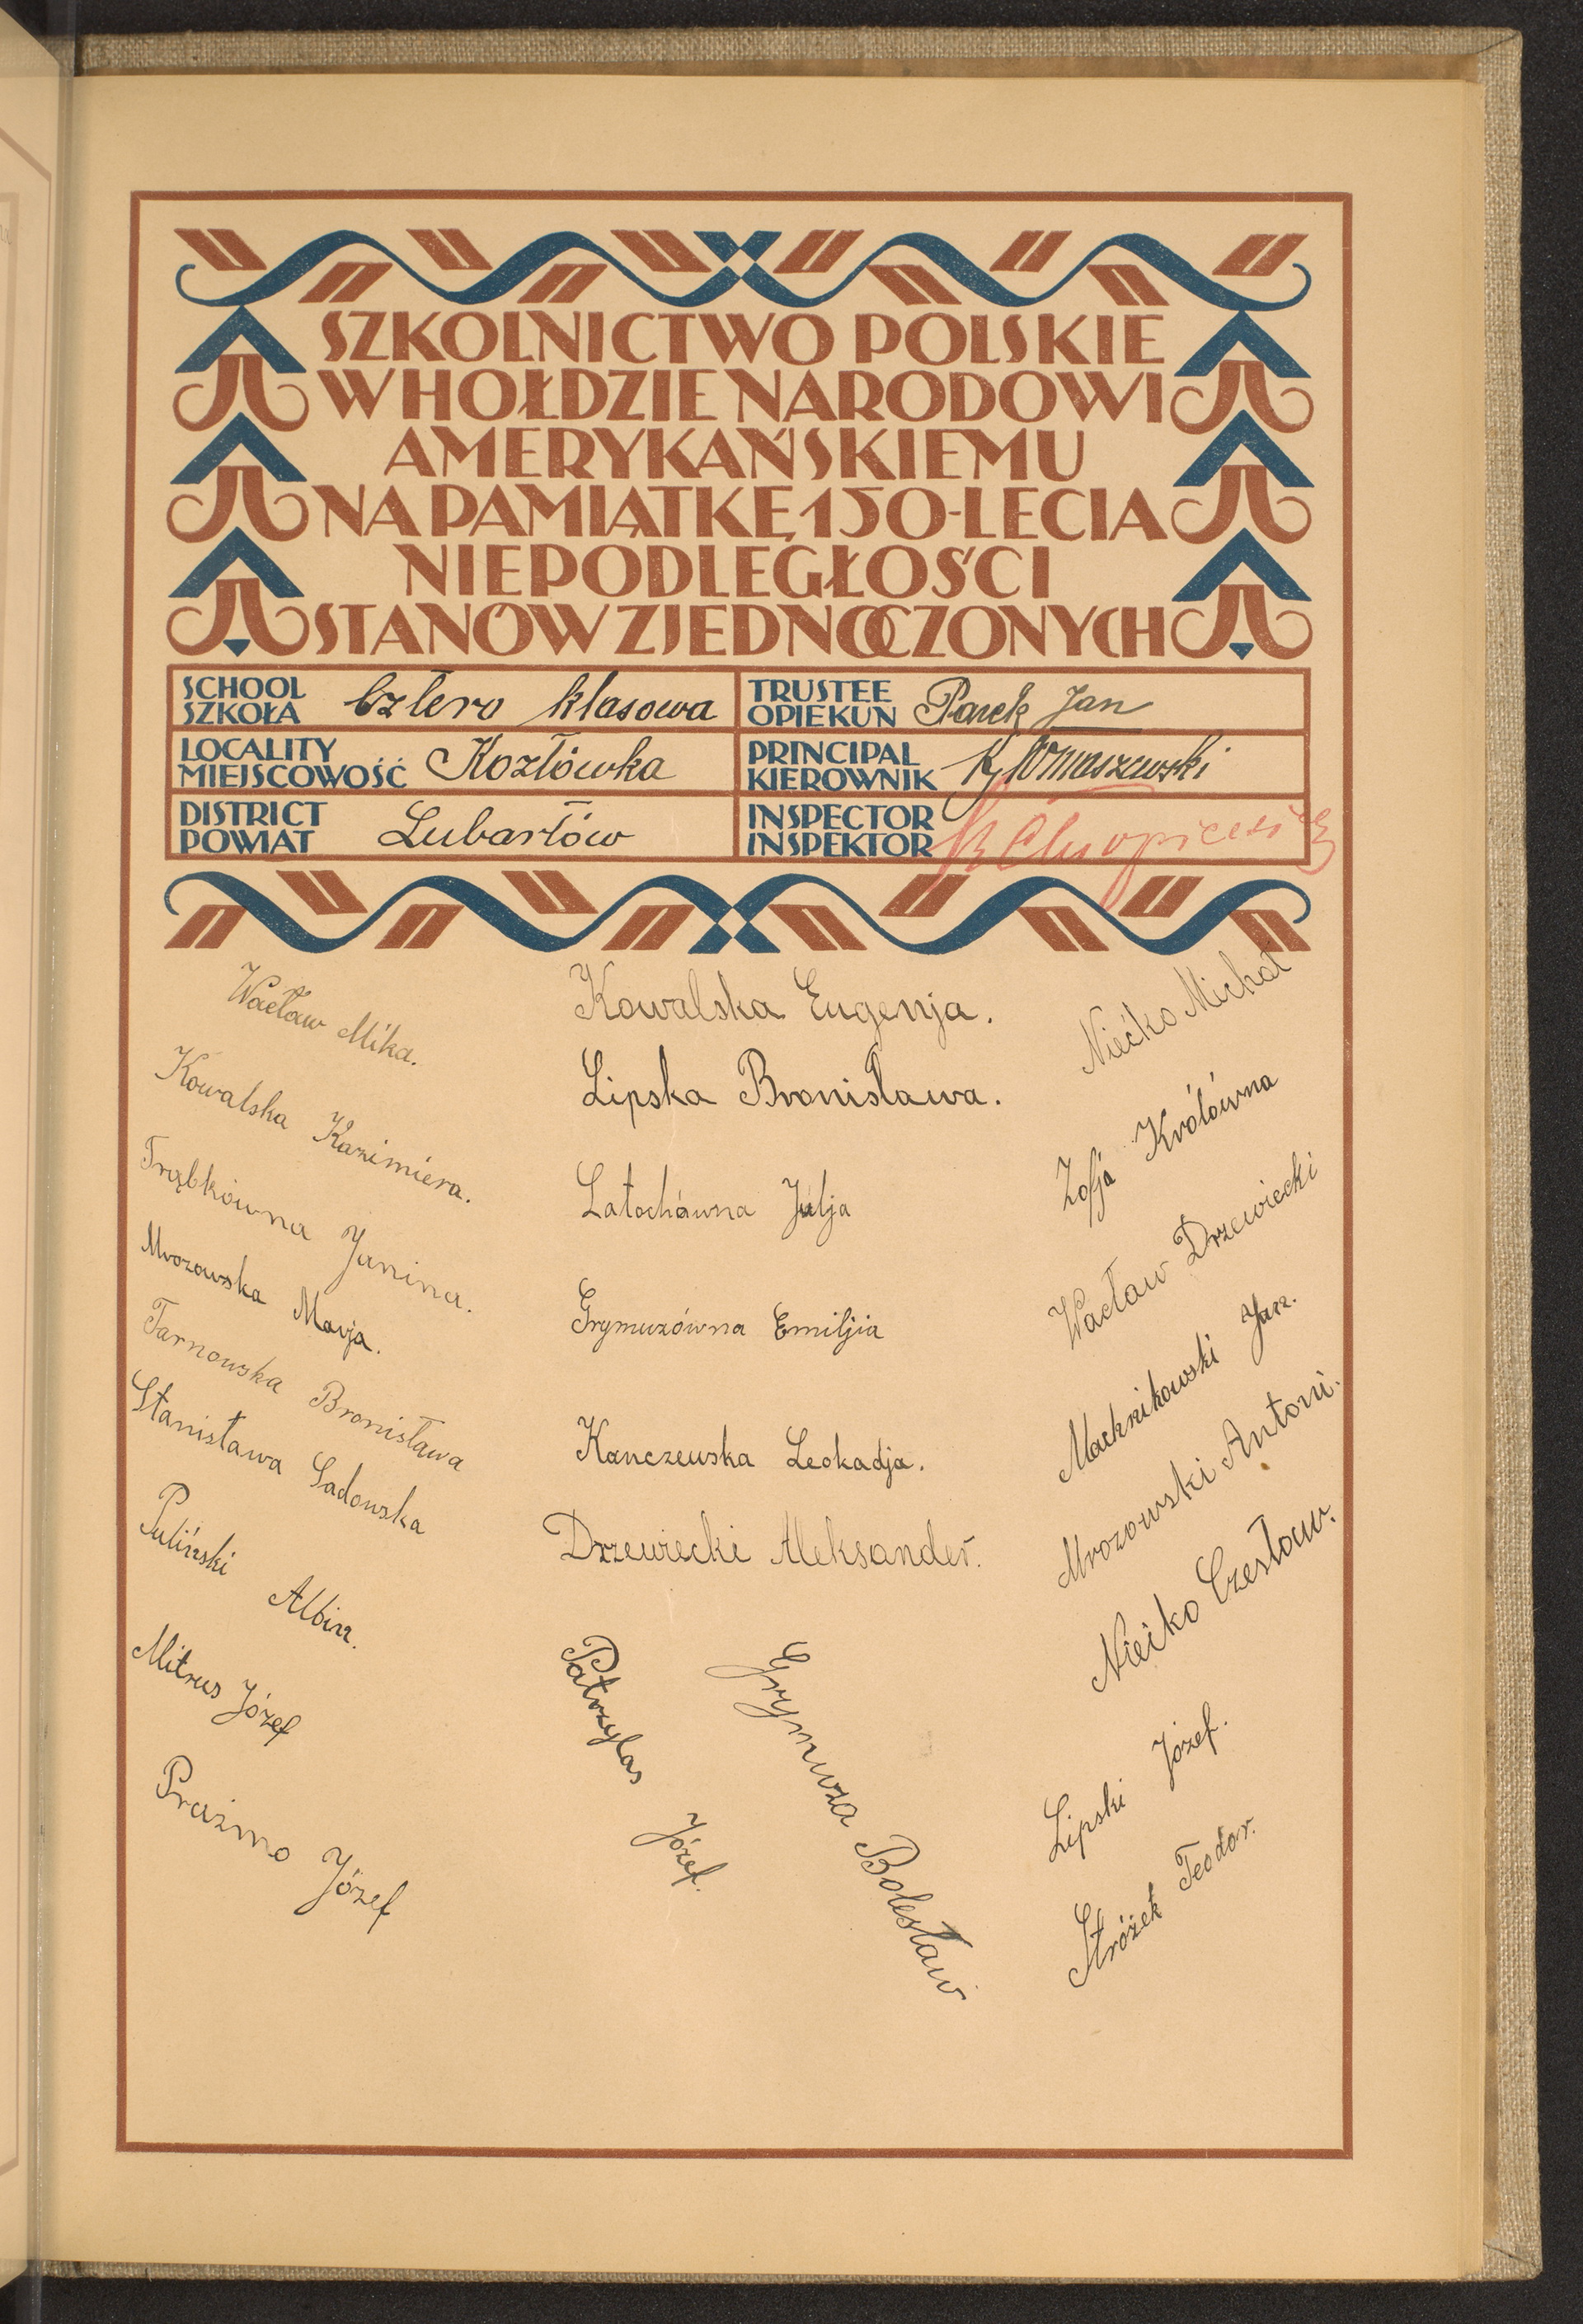 SZKOLNICTWO POLSKIE
W HOŁDZIE NARODOWI
AMERYKAŃSKIEMU
NA PAMIĄTKĘ 150-LECIA
NIEPODLEGŁOŚCI
STANÓW ZJEDNOCZONYCH
SCHOOL
SZKOŁA
Cztero klasowa
TRUSTEE
OPIEKUN
Parek Jan
LOCALITY
MIEJSCOWOŚĆ
Kozłówka
PRINCIPAL
KIEROWNIK
Tomaszewski
DISTRICT
POWIAT
Lubartów
INSPECTOR
INSPEKTOR
Wacław Mika.
Kowalska Kazimiera.
Trąbkówna Janina.
Mrozowska Marja.
Tarnowska Bronisława
Stanisława Sadowska
Puliński Albin.
Mitrus Józef
Prażmo Józef
Kowalska Eugenja.
Lipska Bronisława.
Latochówna Julja
Grymuzówna Emiljia
Kanczewska Leokadja.
Drzewiecki Aleksander.
Patrzylas Józef.
Grymuza Bolesław
Niećko Michał
Zofja Królówna
Wacław Drzewiecki
Machnikowski Jan.
Mrozowski Antoni.
Niećko Czesław.
Lipski Józef.
Stróżek Teodor.